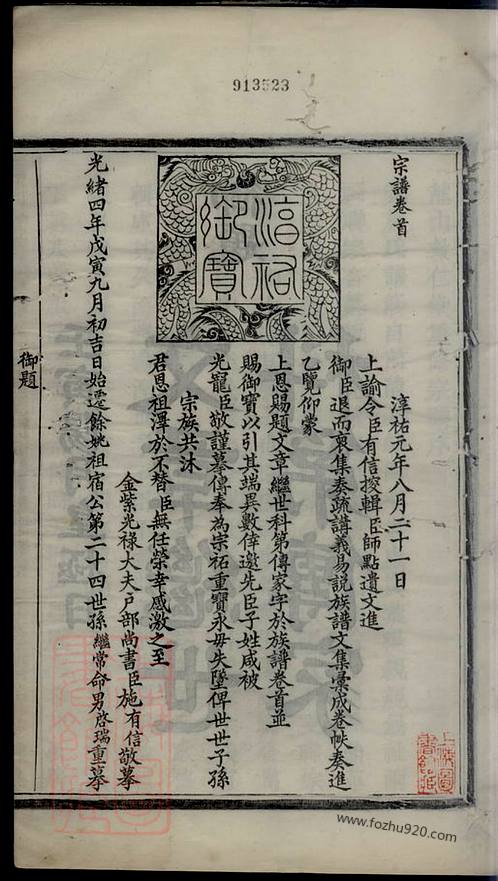 913523
宗譜卷首
淳祐御寶
淳祐元年八月二十一日
上諭令臣有信按輯臣師點遺文進
御臣退而裒集奏疏講義易說族譜文集彙成卷帙奏進
乙覽仰蒙
上恩賜題文章繼世科第傳家字於族譜卷首並
賜御寶以引其端異數倖邀先臣子姓咸被
光寵臣敬謹摹傳奉為宗祏重寶永毋失墜俾世世子孫
宗族共沐
君恩祖澤於不替臣無任榮幸感激之至
金紫光祿大夫戶部尚書臣施有信敬摹
光緒四年戊寅九月初吉日始遷餘姚祖宿公第二十四世孫繼常命男啓瑞重摹
御題
www.fozhu920.com